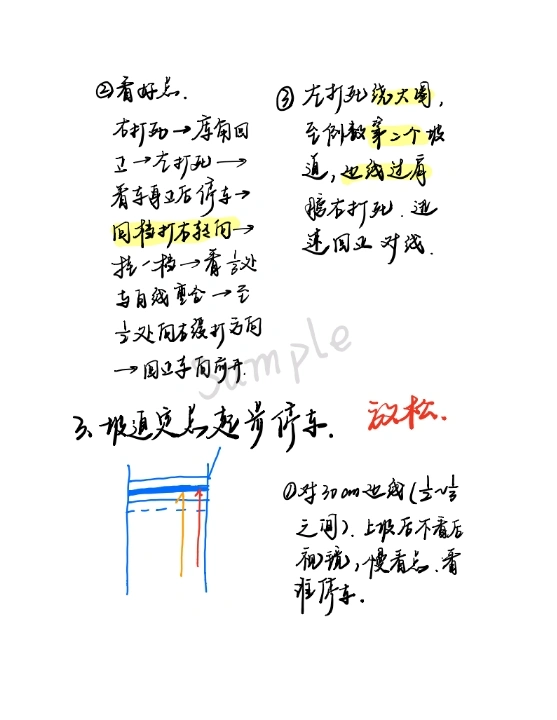 ②看好点.
右打死→库角回
正→左打死→
看车身正后停车→
回档打右转向→
挂一档→看½处
与白线重合→至
½处向右缓打方向
→回正车向前开.
③左打死绕大圈,
至倒数第二个坡
道,边线过肩
膀右打死.迅
速回正对线.
sample
3、坡道定点起步停车.
放松.
①对30cm边线(½~⅓
之间).上坡后不看后
视镜,慢看点.看
准停车.